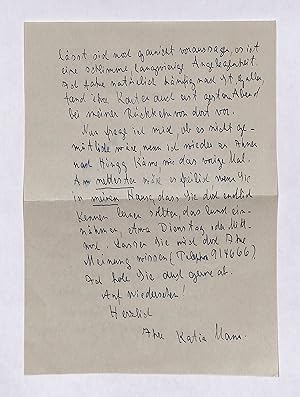 lässt sich noch garnicht voraussagen, es ist
eine schlimme, langwierige Angelegenheit.
Ich fahre natürlich häufig nach St. Gallen,
fand Ihre Karte auch erst gestern Abend
bei meiner Rückkehr von dort vor.
Nun frage ich mich, ob es nicht ge-
mütlicher wäre, wenn ich wieder zu Ihnen
nach Höngg käme, wie das vorige Mal.
Am nettesten wäre es freilich, wenn Sie
in meinem Haus, das Sie doch endlich
kennen lernen sollten, das Lunch ein-
nähmen, etwa Dienstag oder Mitt-
woch. Lassen Sie mich doch Ihre
Meinung wissen (Telephon 914666)
Ich hole Sie auch gerne ab.
Auf Wiedersehen!
Herzlich
Ihre Katia Mann.